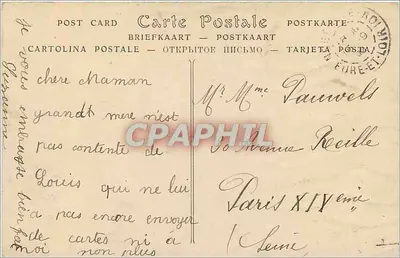 POST CARD Carte Postale POSTKARTE
BRIEFKAART — POSTKAART
CARTOLINA POSTALE — ОТКРЫТОЕ ПИСЬМО — TARJETA POSTAL
EURE-ET-LOIR
chere Maman
grandt mere n'est
pas contente de
Louis qui ne lui
a pas encore envoyer
de cartes ni à
moi non plus
Je vous embrasse bien fort
Suzanne
Mr Mme Pauwels
30 Avenue Reille
Paris XIVeme
Seine
CPAPHIL